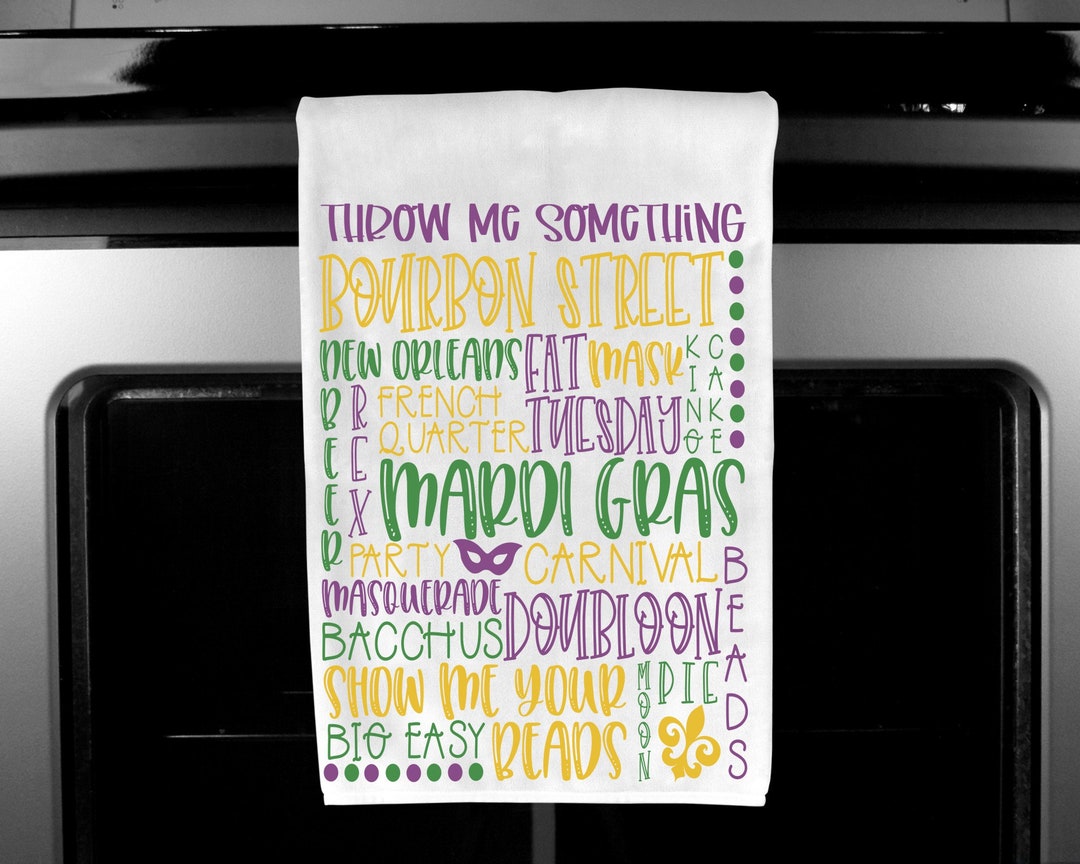 THROW ME SOMETHING
BOURBON STREET
NEW ORLEANS
FAT TUESDAY
MASK
KING
CAKE
BEER
REX
FRENCH
QUARTER
MARDI GRAS
PARTY
CARNIVAL
BEADS
MASQUERADE
DOUBLOON
BACCHUS
SHOW ME YOUR
BEADS
MOON
PIE
BIG EASY